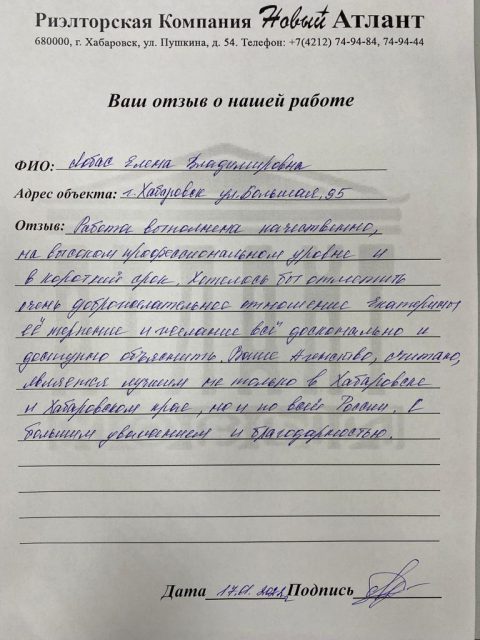 Риэлторская Компания Новый Атлант
680000, г. Хабаровск, ул. Пушкина, д. 54. Телефон: +7(4212) 74-94-84, 74-94-44
Ваш отзыв о нашей работе
ФИО: Лобас Елена Владимировна
Адрес объекта: г. Хабаровск ул. Большая, 95
Отзыв: Работа выполнена качественно,
на высоком профессиональном уровне и
в короткий срок. Хотелось бы отметить
очень доброжелательное отношение Екатерины
её терпение и желание всё досконально и
доступно объяснить. Ваше Агенство, считаю,
является лучшим не только в Хабаровске
и Хабаровском крае, но и по всей России. С
большим уважением и благодарностью.
Дата 17.01. Подпись